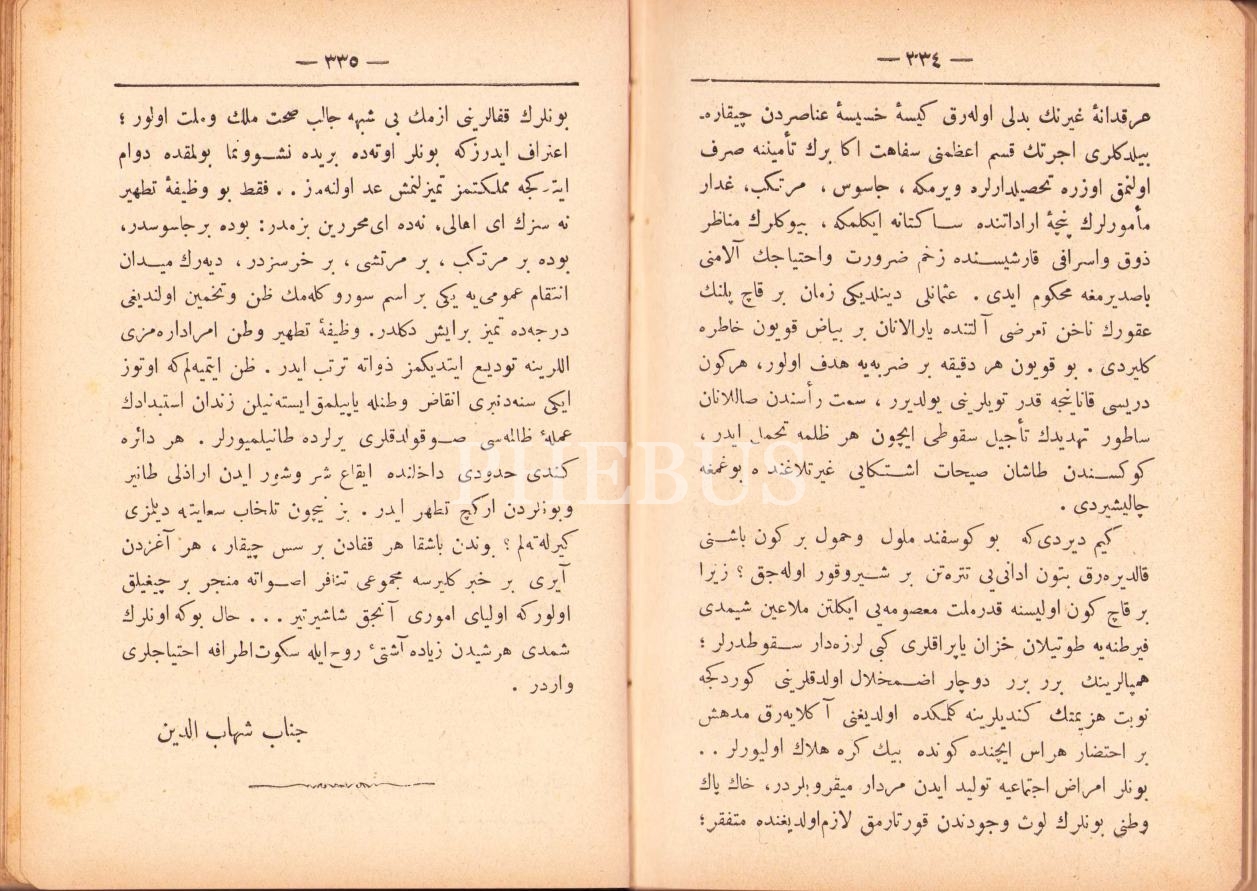 — ٣٣٤ —
هر قدانهٔ غیرتك بدلی اوله‌رق كیسهٔ خسیسهٔ عناصردن چیقاره‌
بیلدكلری اجرتك قسم اعظمنی سفاهت اكابرك تأمیننه صرف
اولنمق اوزره تحصیلدارلره ویرمكه ، جاسوس ، مرتكب، غدار
مأمورلرك پنجهٔ اراداتنده ساكتانه ایكلمكه ، بیوكلرك مناظر
ذوق واسرافی قارشیسنده زخم ضرورت واحتیاجك آلامنی
باصدیرمغه محكوم ایدی . عثمانلی دینلدیكی زمان بر قاچ پلنك
عقورك ناخن تعرضی آلتنده یارالانان بر بیاض قویون خاطره
كلیردی . بو قویون هر دقیقه بر ضربه‌یه هدف اولور، هركون
دریسی قاناینجه قدر تویلرینی یولدیرر ، سمت رأسندن صاللانان
ساطور تهدیدك تأجیل سقوطی ایچون هر ظلمه تحمل ایدر ،
كوكسندن طاشان صیحات اشتكایی غیرتلاغنده بوغمغه
چالیشیردی .
كیم دیردی‌كه بو كوسفند ملول وحمول بر كون باشنی
قالدیره‌رق بتون ادانی‌یی تتره‌تن بر شیروقور اوله‌جق ؟ زیرا
بر قاچ كون اولیسنه قدرملت معصومه‌یی ایكلتن ملاعین شیمدی
فیرطنه‌یه طوتیلان خزان یاپراقلری كبی لرزه‌دار سقوطدرلر ؛
همپالرینك برر برر دوچار اضمحلال اولدقلرینی كوردكجه
نوبت هزیمتك كندیلرینه كلمكده اولدیغنی آكلایه‌رق مدهش
بر احتضار هراس ایچنده كونده بیك كره هلاك اولیورلر ..
بونلر امراض اجتماعیه تولید ایدن مردار میقروبلردر، خاك پاك
وطنی بونلرك لوث وجودندن قورتارمق لازم‌اولدیغنده متفقز؛
— ٣٣٥ —
بونلرك قفالرینی ازمك بی شبهه جالب صحت ملك وملت اولور ؛
اعتراف ایدرزكه بونلر اوته‌ده بریده نشوونما بولمقده دوام
ایتدكجه مملكتمز تمیزلنمش عد اولنه‌مز .. فقط بو وظیفهٔ تطهیر
نه سزك ای اهالی، نه‌ده ای‌محررین بزمدر: بوده برجاسوسدر،
بوده بر مرتكب ، بر مرتشی ، بر خرسزدر ، دیه‌رك میدان
انتقام عمومی‌یه یكی بر اسم سوروكله‌مك ظن وتخمین اولندیغی
درجه‌ده تمیز برایش دكلدر. وظیفهٔ تطهیر وطن امراداره‌مزی
اللرینه تودیع ایتدیكمز ذواته ترتب ایدر . ظن ایتمیه‌لم‌كه اوتوز
ایكی سنه‌دنبری انقاض وطنله یاپیلمق‌ایسته‌نیلن زندان استبدادك
عملهٔ ظالمه‌سی صوقولدقلری یرلرده طانیلمیورلر . هر دائره
كندی حدودی داخلنده ایقاع شر وشور ایدن اراذلی طانیر
وبونلردن اركچ تطهر ایدر . بز نیچون تلخاب سعایته دیلمزی
كیرله‌ته‌لم ؟ بوندن باشقا هر قفادن بر سس چیقار ، هر آغزدن
آیری بر خبر كلیرسه مجموعی تنافر اصواته منجر بر چیغیلق
اولوركه اولیای اموری آنجق شاشیرتیر ... حال بوكه اونلرك
شمدی هرشیدن زیاده آشتیٔ روح‌ایله سكوت‌اطرافه احتیاجلری
واردر .
جناب شهاب الدین
PHEBUS